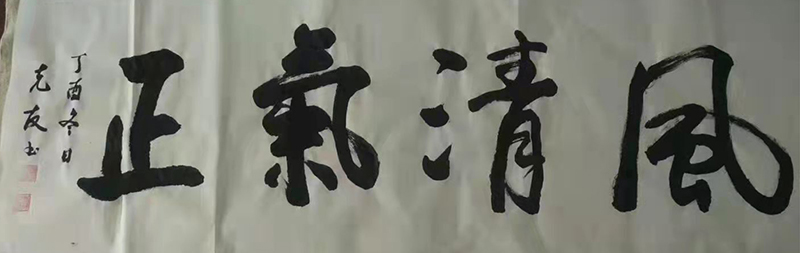 風清氣正
丁酉冬日
克友书